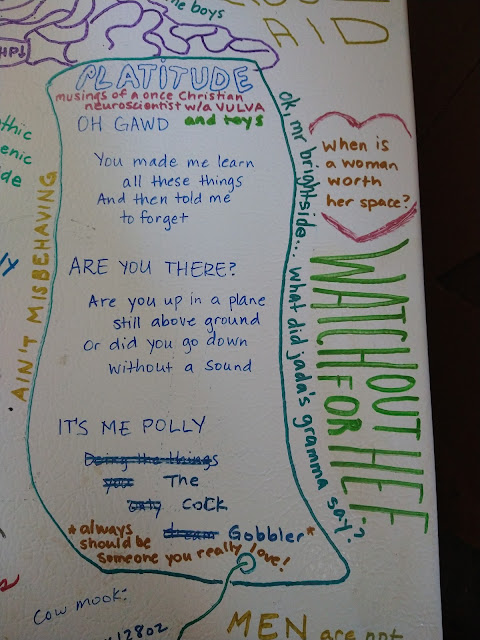 the boys
AID
HP↓
PLATITUDE
musings of a once Christian
neuroscientist w/a VULVA
and toys
OH GAWD
You made me learn
all these things
And then told me
to forget
ARE YOU THERE?
Are you up in a plane
still above ground
Or did you go down
without a sound
IT'S ME POLLY
Doing the things
you The
only Cock
dream Gobbler*
*always
should be
someone you really love!
AIN'T MISBEHAVING
ok, mr brightside... what did jada's gramma say?
when is
a woman
worth
her space?
WATCHOUT
FOR HEF
thic
enic
ide
ly
Cow mook:
12802
MEN are not